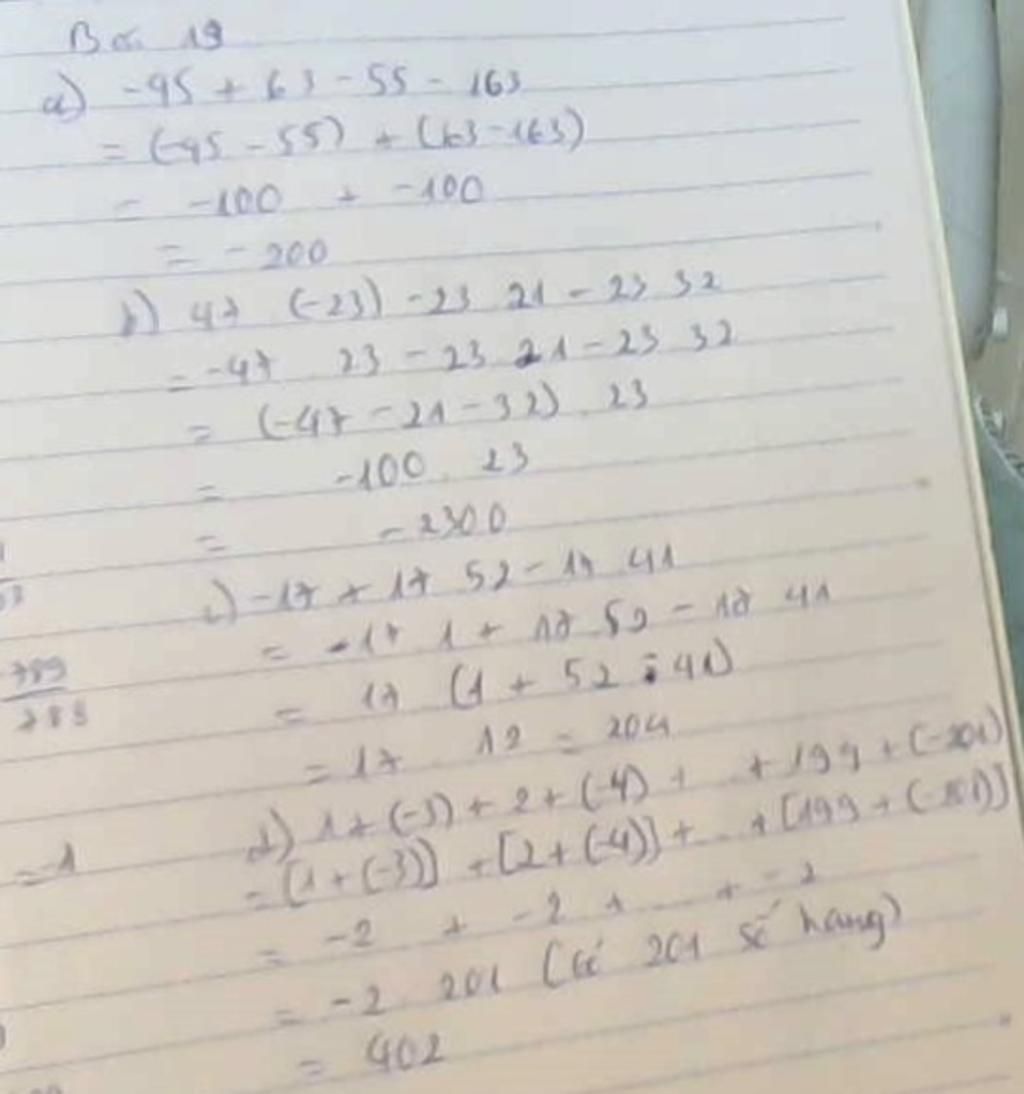 Bài 19
a) -45 + 63 - 55 - 163
= (-45 - 55) + (63 - 163)
= -100 + -100
= -200
b) 47 (-23) - 23 21 - 23 32
= -47 23 - 23 21 - 23 32
= (-47 - 21 - 32) . 23
= -100 . 23
= -2300
c) -17 + 17 52 - 17 41
= -17 1 + 17 52 - 17 41
= 17 (1 + 52 - 41)
= 17 12 = 204
d) 1 + (-3) + 2 + (-4) + .. + 199 + (-201)
= [1 + (-3)] + [2 + (-4)] + .. + [199 + (-201)]
= -2 + -2 + ... + -2
= -2 201 (có 201 số hạng)
= 402
789
= 1